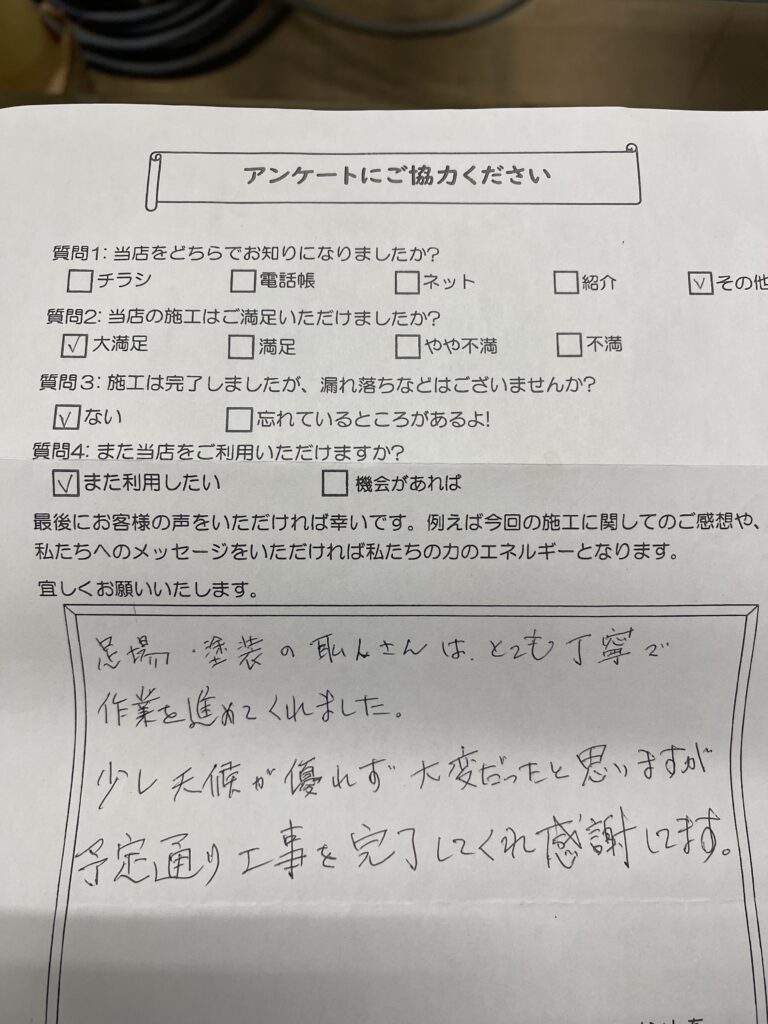 アンケートにご協力ください
質問1:当店をどちらでお知りになりましたか?
チラシ 電話帳 ネット 紹介 その他
質問2:当店の施工はご満足いただけましたか?
大満足 満足 やや不満 不満
質問3:施工は完了しましたが、漏れ落ちなどはございませんか?
ない 忘れているところがあるよ!
質問4:また当店をご利用いただけますか?
また利用したい 機会があれば
最後にお客様の声をいただければ幸いです。例えば今回の施工に関してのご感想や、
私たちへのメッセージをいただければ私たちの力のエネルギーとなります。
宜しくお願いいたします。
足場・塗装の職人さんは、とても丁寧で
作業を進めてくれました。
少し天候が優れず大変だったと思いますが
予定通り工事を完了してくれ感謝してます。